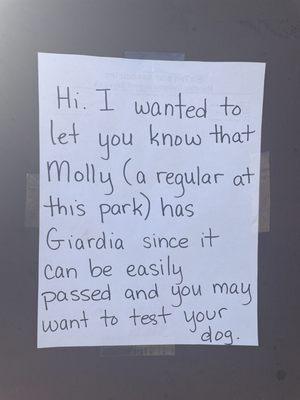 Hi. I wanted to
let you know that
Molly (a regular at
this park) has
Giardia since it
can be easily
passed and you may
want to test your
dog.